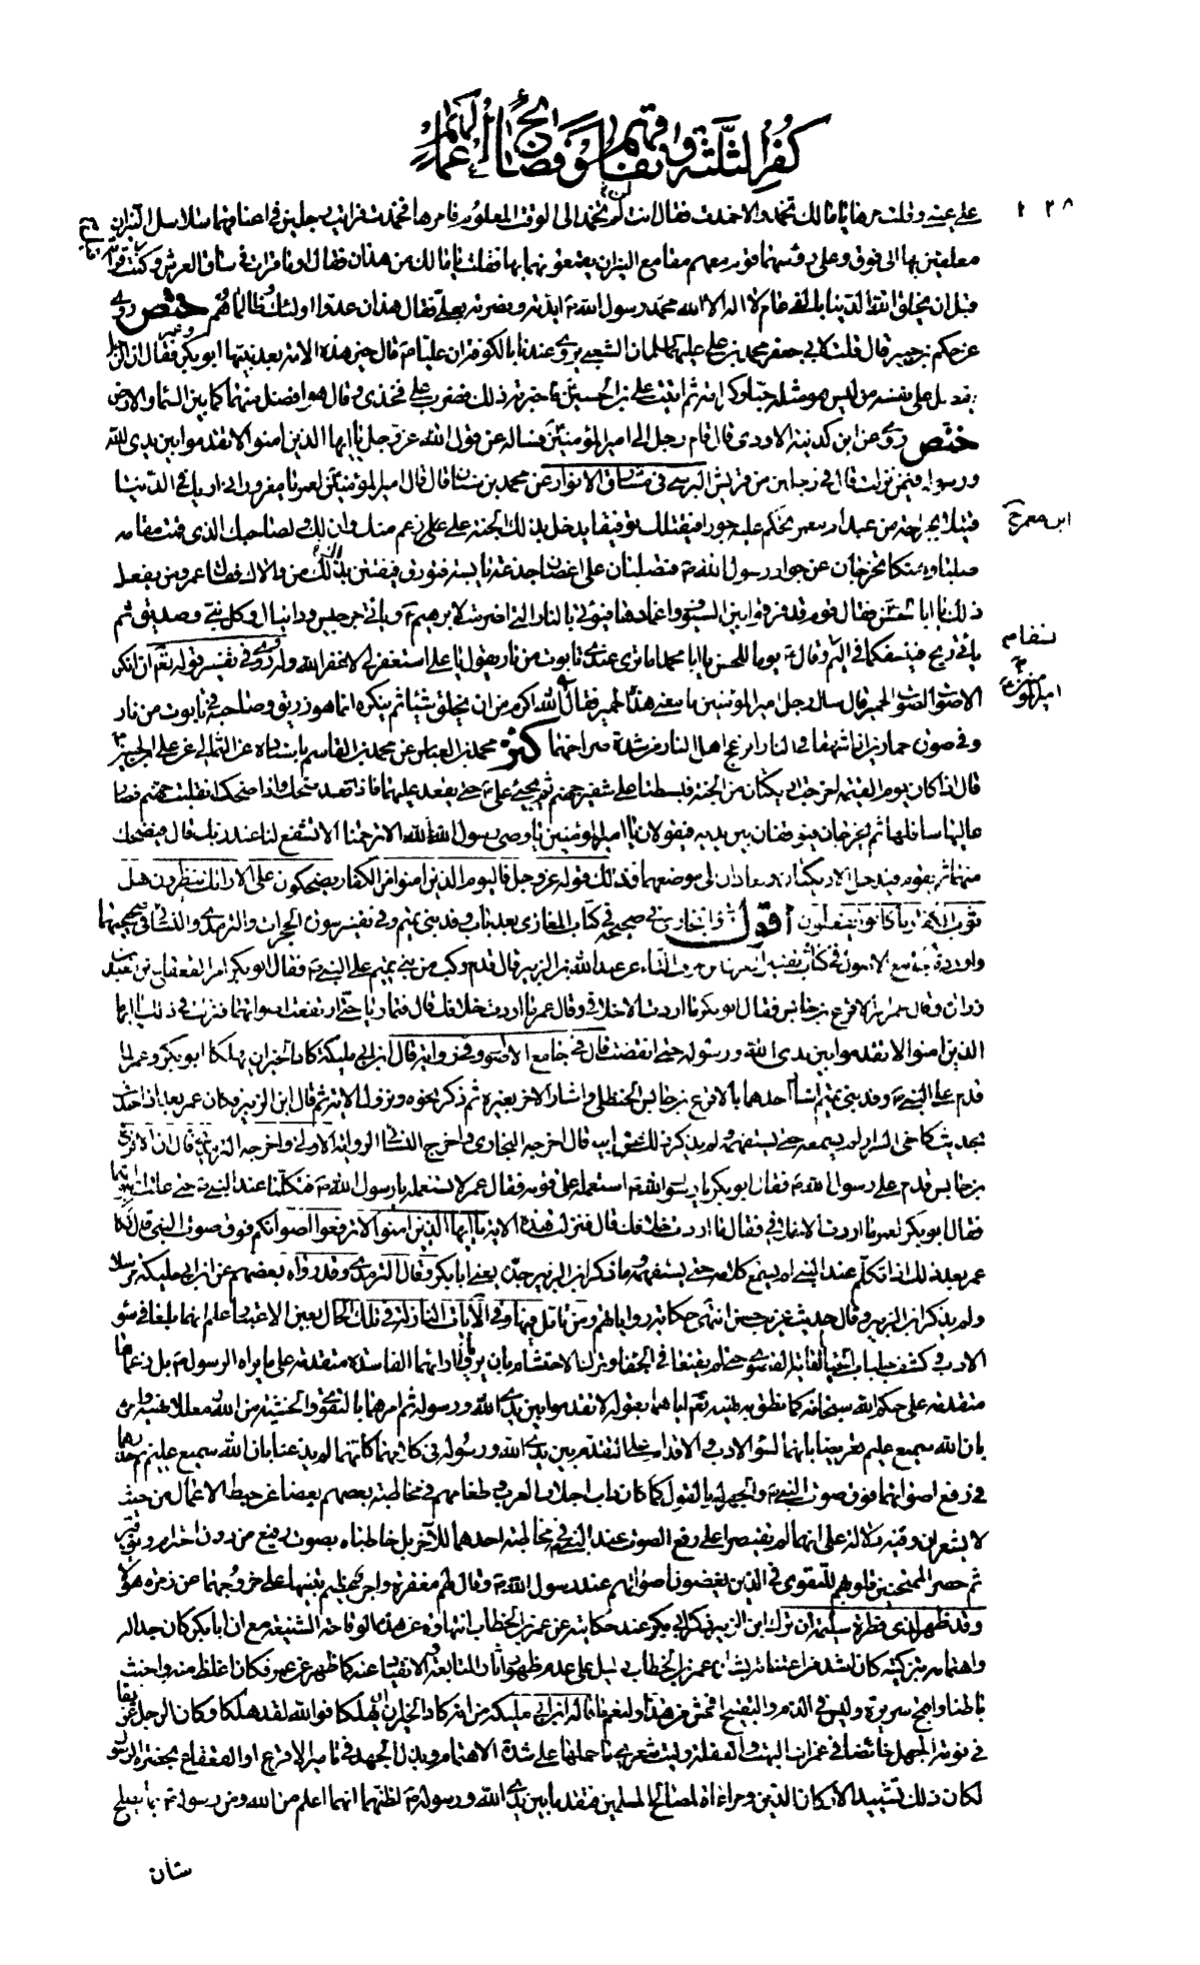 كفر الثلثة ونفاقهم وفضائح أعمالهم
٢٣٨
على عينه وقلت مرها يا مالك تخمد والا خمدت فقال انت لن تخمد الى الوقت المعلوم فامرها فخمدت فرايت رجلين في اعناقهما سلاسل النيران
معلقين بها الى فوق وعلى رؤسهما قوم معهم مقامع النيران يقمعونهما بها فقلت يا مالك من هذان فقال وما قرات في ساق العرش وكنت قراته
قبل ان يخلق الله الدنيا بالفي عام لا اله الا الله محمد رسول الله ايدته ونصرته بعلي فقال هذان عدوا اولئك وظالماهم ختص روى
عن حكم بن جبير قال قلت لابي جعفر محمد بن علي عليهما السلام ان الشعبي يروي عندنا بالكوفة ان عليا قال خير هذه الامة بعد نبيها ابو بكر وعمر فقال ان الرجل
يفضل على نفسه من ليس هو مثله حبا وكرامة ثم اتيت علي بن الحسين فاخبرته ذلك فضرب على فخذي وقال هو افضل منهما كما بين السماء والارض
ختص روى عن ابن كدينة الاودي قال قام رجل الى امير المؤمنين فساله عن قول الله عز وجل يا ايها الذين امنوا لا تقدموا بين يدي الله
ورسوله فيمن نزلت قال في رجلين من قريش البرسي في مشارق الانوار عن محمد بن سنان قال قال امير المؤمنين لعمر يا مغرور اني اراك في الدنيا
قتيلا بجراحة من عبد ام معمر تحكم عليه جورا فيقتلك توفيقا يدخل بذلك الجنة على رغم منك وان لك ولصاحبك الذي قمت مقامه
ابن معمر
صلبا وهتكا تخرجان عن جوار رسول الله فتصلبان على اغصان جذعة يابسة فتورق فيفتتن بذلك من والاك فقال عمر ومن يفعل
ذلك يا ابا الحسن فقال قوم قد فرقوا بين السيوف واغمادها فيؤتى بالنار التي اضرمت لابرهيم وياتي جرجيس ودانيال وكل نبي وصديق ثم
ياتي ريح فينسفكما في اليم نسفا وقال يوما للحسن يا ابا محمد اما ترى عندي تابوت من نار يقول يا علي استغفر لي لا غفر الله له وروي في تفسير قوله تعالى ان انكر
الاصوات لصوت الحمير قال سال رجل امير المؤمنين ما معنى هذا الحمير فقال الله اكرم من ان يخلق شيئا ثم ينكره انما هو زريق وصاحبه في تابوت من نار
وفي صورة حمارين اذا شهقا في النار انزعج اهل النار من شدة صراخهما كنز محمد بن العباس عن محمد بن القاسم باسناده عن الثمالي عن علي بن الحسين
قال اذا كان يوم القيمة اخرجت اريكتان من الجنة فبسطتا على شفير جهنم ثم يجيء علي حتى يقعد عليهما فاذا قعد ضحك واذا ضحك انقلبت جهنم فصار
عاليها سافلها ثم يخرجان فيوقفان بين يديه فيقولان يا امير المؤمنين يا وصي رسول الله الا ترحمنا الا تشفع لنا عند ربك قال فيضحك
منهما ثم يقوم فيدخل الاريكتان ويعادان الى موضعهما فذلك قوله عز وجل فاليوم الذين امنوا من الكفار يضحكون على الارائك ينظرون هل
ثوب الكفار ما كانوا يفعلون أقول روى البخاري في صحيحه في كتاب المغازي بعد باب وفد بني تميم وفي تفسير سورة الحجرات والترمذي والنسائي في صحيحيهما
واورده في جامع الاصول في كتاب تفسير القران من حرف التاء عن عبد الله بن الزبير قال قدم ركب من بني تميم على النبي فقال ابو بكر امر القعقاع بن معبد بن
زرارة وقال عمر امر الاقرع بن حابس فقال ابو بكر ما اردت الا خلافي وقال عمر ما اردت خلافك قال فتماريا حتى ارتفعت اصواتهما فنزلت في ذلك يا ايها
الذين امنوا لا تقدموا بين يدي الله ورسوله حتى انقضت قال في جامع الاصول وفي رواية قال ابن ابي مليكة كاد الخيران يهلكا ابو بكر وعمر لما
قدم على النبي وفد بني تميم اشار احدهما بالاقرع بن حابس الحنظلي واشار الاخر بغيره ثم ذكر نحوه ونزول الاية ثم قال ابن الزبير فكان عمر بعد اذا حدث
بحديث كاخي السرار لم يسمعه حتى يستفهمه ولم يذكر ذلك عن ابيه قال اخرجه البخاري واخرج النسائي الرواية الاولى واخرجه الترمذي قال ان الاقرع
بن حابس قدم على رسول الله فقال ابو بكر يا رسول الله استعمله على قومه فقال عمر لا تستعمله يا رسول الله فتكلما عند النبي حتى علت اصواتهما
فقال ابو بكر لعمر ما اردت الا خلافي فقال ما اردت خلافك قال فنزلت هذه الاية يا ايها الذين امنوا لا ترفعوا اصواتكم فوق صوت النبي قال فكان
عمر بعد ذلك اذا تكلم عند النبي لم يسمع كلامه حتى يستفهمه وما ذكر ابن الزبير جده يعني ابا بكر وقال الترمذي وقد رواه بعضهم عن ابن ابي مليكة مرسلا
ولم يذكر ابن الزبير وقال حديث غريب حسن انتهى حكاية رواياتهم ومن تامل فيها وفي الآيات النازلة في تلك الحال بعين الاعتبار علم انهما بلغا في سوء
الادب وكشف جلباب الحياء الغاية القصوى حتى لم يقنعا في الجفاء وترك الاحتشام بان يروا اراءهما الفاسدة متقدمة على ما يراه الرسول بل زعماها
متقدمة على حكم الله سبحانه كما نطق به نهيه تعالى اياهما بقوله لا تقدموا بين يدي الله ورسوله ثم امرهما بالتقوى والخشية من الله معللا
بان الله سميع عليم تعريضا بانهما لسوء الادب والاقدام على التقدم بين يدي الله ورسوله في كلامهما كانهما لم يذعنا بان الله سميع عليم ثم حذرهما
في رفع اصواتهما فوق صوت النبي والجهر له بالقول كما كان داب اجلاف العرب وطغامهم في مخاطبة بعضهم بعضا عن حبط الاعمال من حيث
لا يشعران وفيه دلالة على انهما لم يقتصرا على رفع الصوت عند النبي في مخاطبة احدهما للآخر بل خاطباه بصوت رفيع من دون احترام وتوقير
ثم حصر الممتحنين قلوبهم للتقوى في الذين يغضون اصواتهم عند رسول الله وقال لهم مغفرة واجر عظيم تنبيها على خروجهما عن زمرة هؤلاء
وقد ظهر لذي فطرة سليمة ان ترك ابن الزبير ذكر ابي بكر عند حكايته عن عمر بن الخطاب انتهاءه عن هذه الوقاحة الشنيعة مع ان ابا بكر كان جدا له
واهتمامه بتزكيته كان اشد من اعتنائه بشان عمر بن الخطاب دليل على عدم ظهور آثار المتابعة والانقياد عنه كما ظهر عن عمر فكان اغلظ منه واخبث
باطنا واقبح سريرة وليس في الذم والتقبيح افحش من هذا ولنعم ما قاله ابن ابي مليكة من انه كاد الخيران ان يهلكا فوالله لقد هلكا وكان الرجل غريقا
في نومة الجهل خائضا في غمرات البهت والغفلة وليت شعري ما حملهما على شدة الاهتمام وبذل الجهد في تامير الاقرع او القعقاع بحضرة الرسول
لكان ذلك تشييدا لاركان الدين ومراعاة لمصالح المسلمين فتقدما بين يدي الله ورسوله لظنهما انهما اعلم من الله ومن رسوله بما يصلح
شان